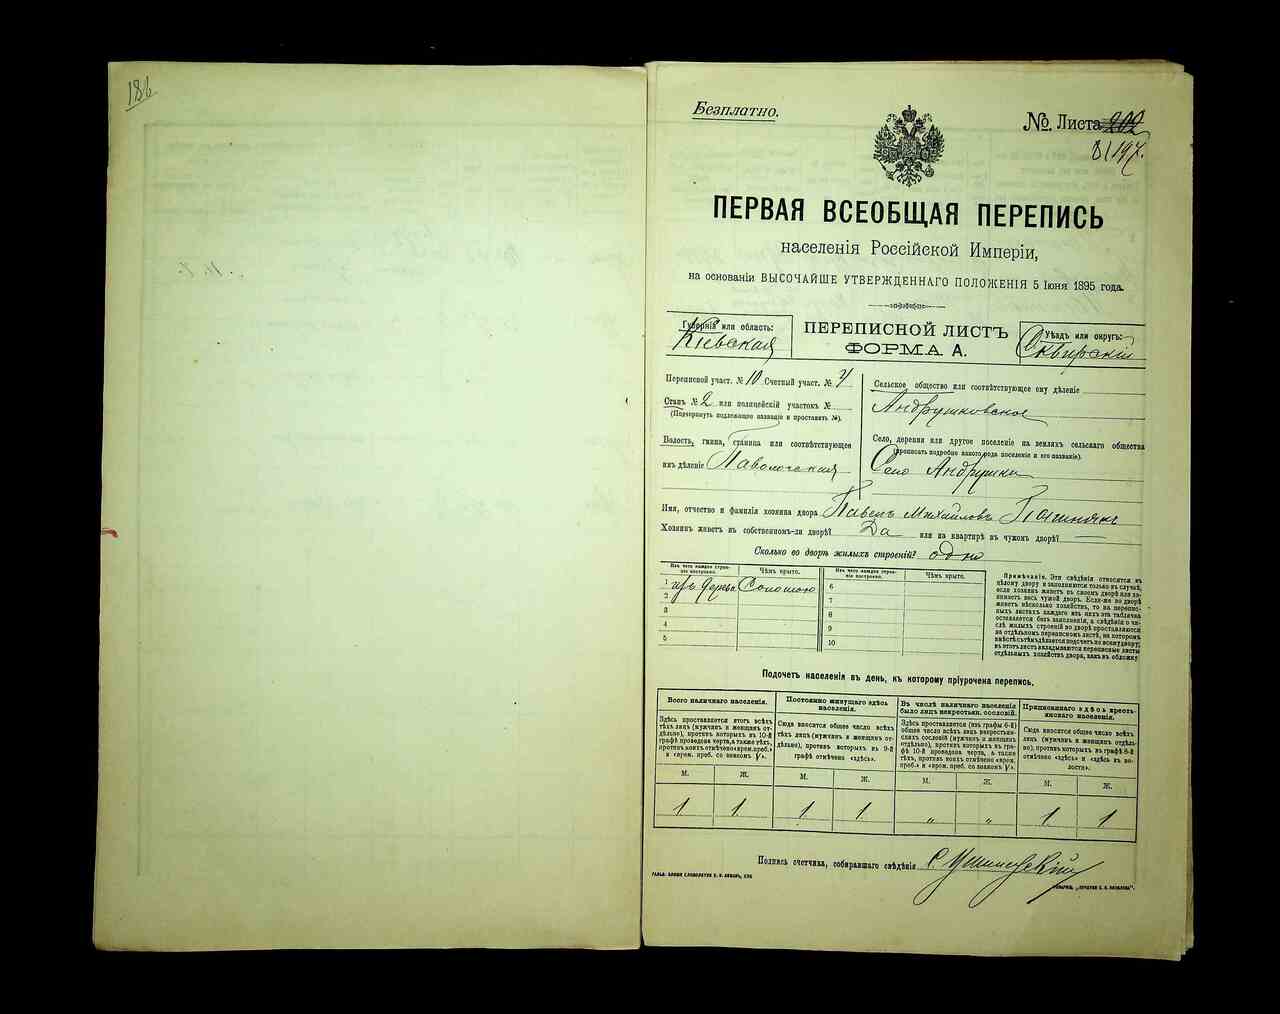 186
Безплатно.
№ Листа 202
197.
ПЕРВАЯ ВСЕОБЩАЯ ПЕРЕПИСЬ
населенія Россійской Имперіи,
на основаніи ВЫСОЧАЙШЕ УТВЕРЖДЕННАГО ПОЛОЖЕНІЯ 5 Іюня 1895 года.
Губернія или область:
Кіевская
ПЕРЕПИСНОЙ ЛИСТЪ
ФОРМА А.
Уѣздъ или округъ:
Сквирскій
Переписной участ. № 10 Счетный участ. № 4
Станъ № 2 или полицейскій участокъ №
(Подчеркнуть подлежащее названіе и проставить №).
Волость, гмина, станица или соотвѣтствующее
имъ дѣленіе Паволочская
Сельское общество или соотвѣтствующее ему дѣленіе
Андрушковское
Село, деревня или другое поселеніе на земляхъ сельскаго общества
(прописать подробно какого рода поселеніе и его названіе).
Село Андрушки
Имя, отчество и фамилія хозяина двора Павелъ Михайловъ
Хозяин живетъ въ собственномъ-ли дворѣ? Да или на квартирѣ въ чужомъ дворѣ? —
Сколько во дворѣ жилыхъ строеній? одно
Изъ чего каждое строеніе построено. Чѣмъ крыто.
Изъ чего каждое строеніе построено. Чѣмъ крыто.
1 изъ дерева Соломою 6
2 7
3 8
4 9
5 10
Примѣчаніе. Эти свѣдѣнія относятся къ
цѣлому двору и заполняются только въ случаѣ,
если хозяин живетъ въ своемъ дворѣ или занимаетъ
весь чужой дворъ. Если-же во дворѣ
живетъ нѣсколько хозяйствъ, то на переписныхъ
листахъ каждаго изъ нихъ эта табличка
оставляется безъ заполненія, а свѣдѣнія о числѣ
жилыхъ строеній во дворѣ проставляются
на отдѣльномъ переписномъ листѣ, на которомъ
вмѣстѣ съ тѣмъ дѣлается подсчетъ по всему двору;
въ этотъ листъ вкладываются переписные листы
отдѣльныхъ хозяйствъ двора, какъ въ обложку.
Подсчетъ населенія въ день, къ которому пріурочена перепись.
Всего наличнаго населенія.
Здѣсь проставляется итогъ всѣхъ
тѣхъ лицъ (мужчинъ и женщинъ отдѣльно),
противъ которыхъ въ 10-й
графѣ проведена черта, а также тѣхъ,
противъ коихъ отмѣчено «врем. преб.»
и «врем. преб. со знакомъ V».
Постоянно живущаго здѣсь
населенія.
Сюда вносится общее число всѣхъ
тѣхъ лицъ (мужчинъ и женщинъ отдѣльно),
противъ которыхъ въ 9-й
графѣ отмѣчено «здѣсь».
Въ числѣ наличнаго населенія
было лицъ некрестьян. сословій.
Здѣсь проставляется (изъ графы 6-й)
общее число всѣхъ лицъ некрестьянскихъ
сословій (мужчинъ и женщинъ
отдѣльно), противъ которыхъ въ графѣ
10-й проведена черта, а также
тѣхъ, противъ коихъ отмѣчено «врем.
преб.» и «врем. преб. со знакомъ V».
Приписаннаго здѣсь крестьянскаго
населенія.
Сюда вносится общее число всѣхъ
лицъ (мужчинъ и женщинъ отдѣльно),
противъ которыхъ въ графѣ 8-й
отмѣчено «здѣсь» и «здѣсь къ волости».
М. Ж. М. Ж. М. Ж. М. Ж.
1 1 1 1 " " 1 1
Подпись счетчика, собиравшаго свѣдѣнія